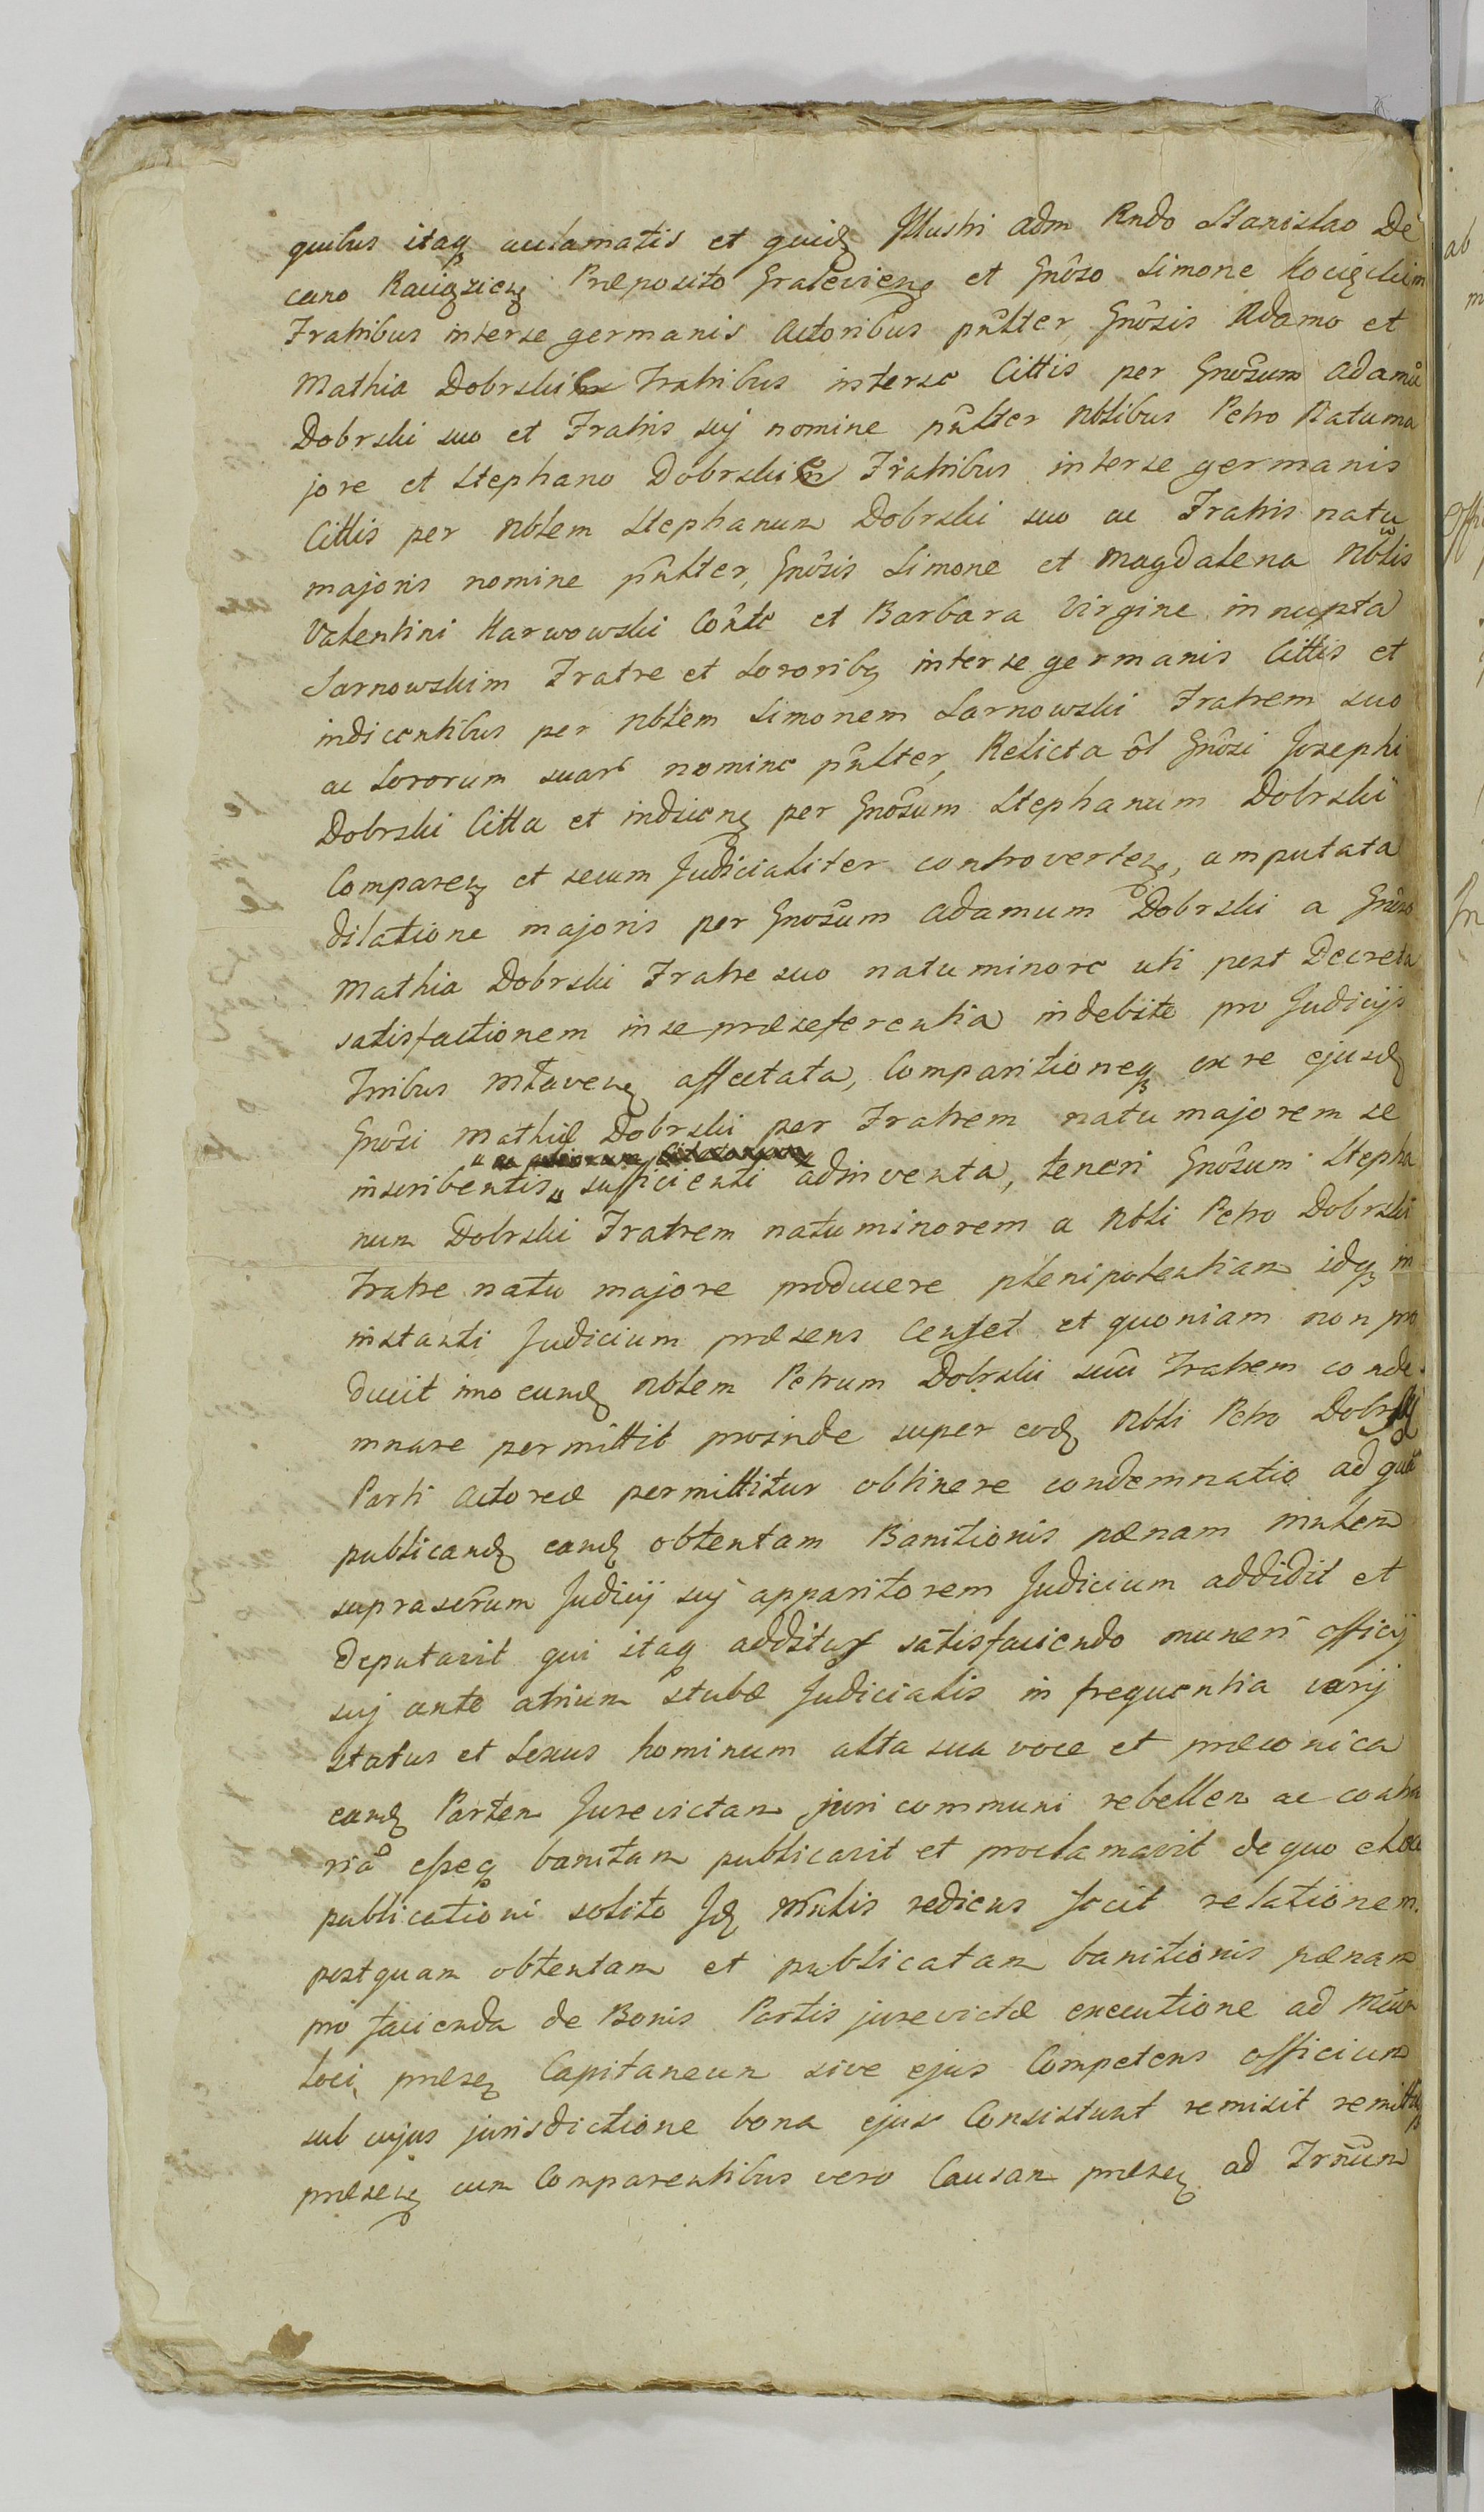 quibus itaq acclamatis et quid Illustri adm Rndo Stanislao De
cano Raciązień Præposito Grajeviens et Gnoso Simone Kocięckim
Fratribus inter se germanis Actoribus pnlter, Gnosis Adamo et
Mathia Dobrski Fratribus inter se Cittis per Gnosum Adamū
Dobrski suo et Fratris suj nomine pnlter Nblibus Petro Natu ma
jore et Stephano Dobrski Fratribus inter se germanis
Cittis per Nblem Stephanum Dobrski suo ac Fratris natu
majoris nomine pnlter, Gnosis Simone et Magdalena Nblis
Valentini Karwowski Conte et Barbara Virgine innupta
Sarnowskim Fratre et Sororibq inter se germanis Cittis et
indicentibus per Nblem Simonem Sarnowski Fratrem suo
ac Sororum suar nomine pnlter, Relicta ol Gnosi Josephi
Dobrski Citta et indicen per Gnosum Stephanum Dobrski
Comparen et secum Judicialiter controverten, amputata
dilatione majoris per Gnosum Adamum Dobrski a Gnoso
Mathia Dobrski Fratre suo natu minore uti post Decreta
satisfactionem in se præseferentia indebite pro Judicijs
Trnibus affectata, Comparitioneq ex re ejusd
Gnosi Mathiæ Dobrski per Fratrem natu majorem se
inscribentis sufficienti adinventa, teneri Gnosum Stepha
num Dobrski Fratrem natu minorem a Nbli Petro Dobrski
Fratre natu majore producere plenipotentiam idq in
instanti Judicium præsens Censet et quoniam non pro
ducit imo eund Nblem Petrum Dobrski suū Fratrem conde
mnare permittit proinde super eod Nbli Petro Dobrski
Parti Actoreæ permittitur obtinere condemnatio ad quā
publicand eand obtentam Banitionis pænam Mnlem
suprascrum Judicij suj apparitorem Judicium addidit et
deputavit qui itaq additus satisfaciendo muneri officij
suj ante atrium stubæ Judicialis in frequentia varij
status et Sexus hominum alta sua voce et præconica
eand Partem Jurevictam juri communi rebellem ac contra
riā esseq banitam publicavit et proclamavit de quo e loco
publicationi solito Id Mnlis redicus fecit relationem.
postquam obtentam et publicatam banitionis pænam
pro facienda de Bonis Partis jurevictæ executione ad Mcum
loci, præsen Capitaneum sive ejus Competens officium
sub cujus jurisdictione bona ejus Consistunt remisit remittitq
præsen cum Comparentibus vero Causam præsen ad Trnum